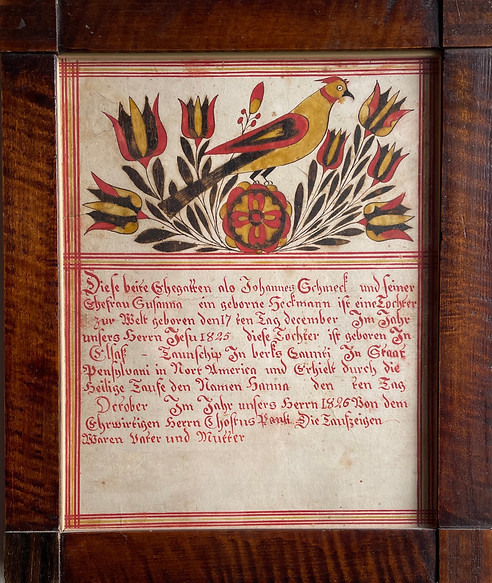 Diese beite Ehegatten als Johannes Schmeck und seiner
Ehefrau Susanna ein geborne Heckmann ist eine Tochter
zur Welt geboren den 17 ten Tag december Im Jahr
unsers Herrn Jesu 1825 diese Tochter ist geboren In
Elsas - Taunschip In berks Caunti In Staat
Pensylvani in Nort America und Erhielt durch die
Heilige Taufe den Namen Hanna den ten Tag
October Im Jahr unsers Herrn 1826 Von dem
Ehrwirtigen Herrn Pauli Die Taufzeigen
Waren Vater und Mutter